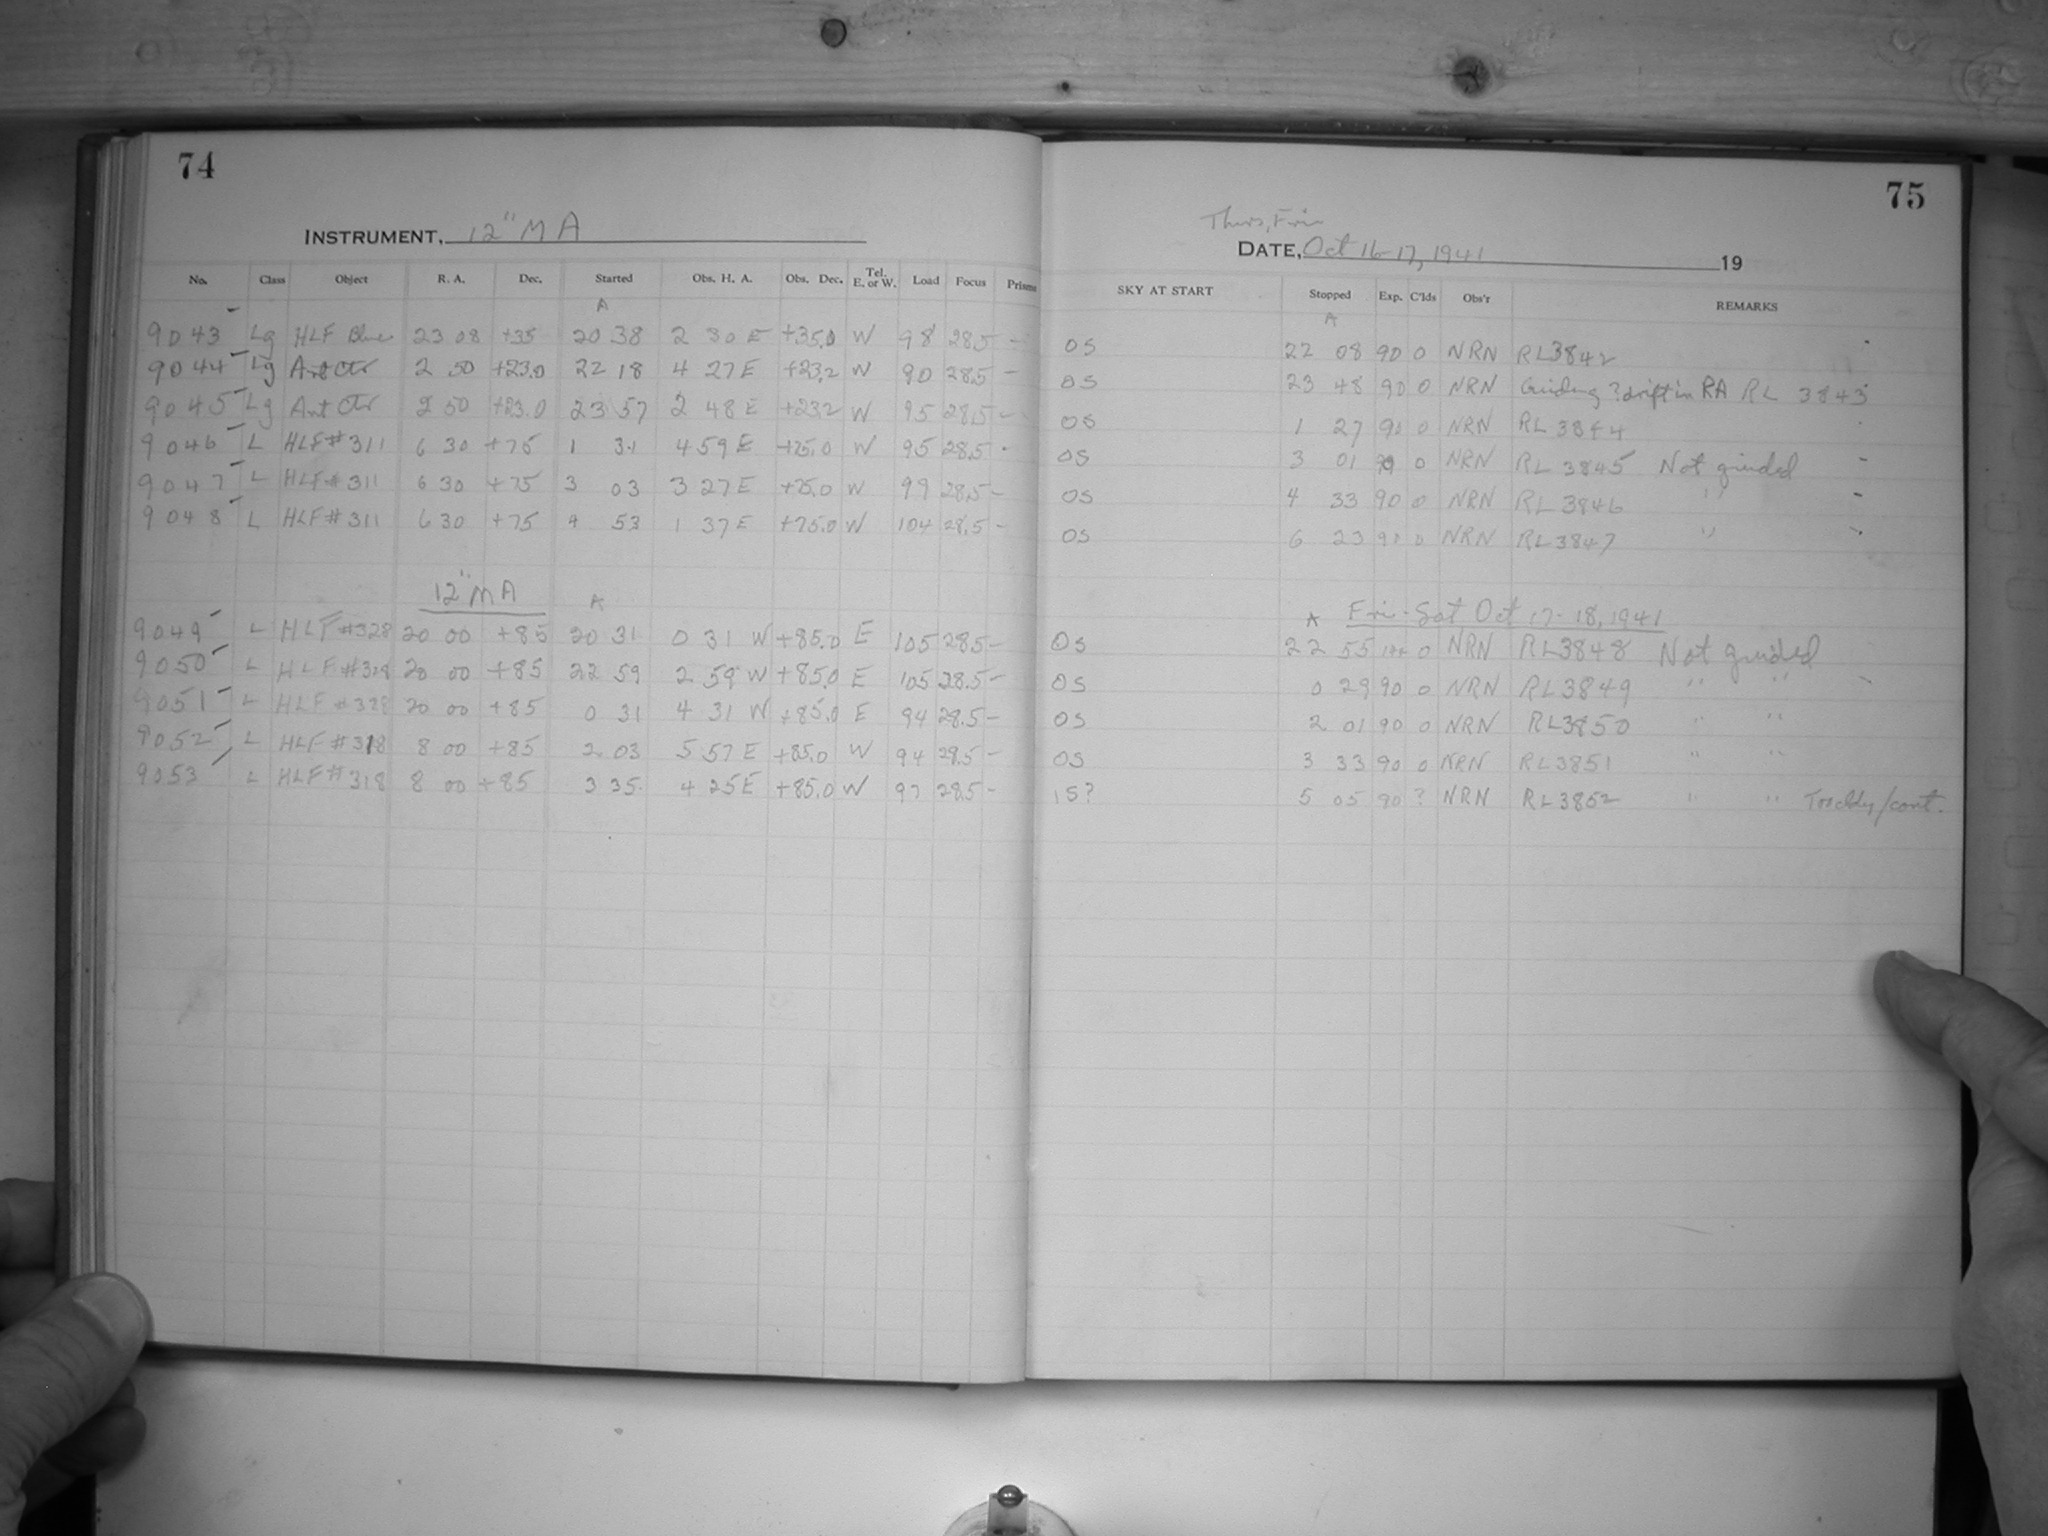 74
INSTRUMENT, 12" M A
No. Class Object R. A. Dec. Started Obs. H. A. Obs. Dec. Tel. E. or W. Load Focus Prisms
A
9043 Lg HLF Blue 23 08 +35 20 38 2 30 E +35.0 W 98 28.5 -
9044 Lg Ant Ctr 2 50 +23.0 22 18 4 27 E +23.2 W 90 28.5 -
9045 Lg Ant Ctr 2 50 +23.0 23 57 2 48 E +23.2 W 95 28.5 -
9046 L HLF #311 6 30 +75 1 31 4 59 E +75.0 W 95 28.5 -
9047 L HLF #311 6 30 +75 3 03 3 27 E +75.0 W 99 28.5 -
9048 L HLF #311 6 30 +75 4 53 1 37 E +75.0 W 104 28.5 -
12" M A A
9049 L HLF #328 20 00 +85 20 31 0 31 W +85.0 E 105 28.5 -
9050 L HLF #328 20 00 +85 22 59 2 59 W +85.0 E 105 28.5 -
9051 L HLF #328 20 00 +85 0 31 4 31 W +85.0 E 94 28.5 -
9052 L HLF #318 8 00 +85 2 03 5 57 E +85.0 W 94 28.5 -
9053 L HLF #318 8 00 +85 3 35 4 25 E +85.0 W 97 28.5 -
75
Thurs, Fri
DATE, Oct 16-17, 1941 19
SKY AT START Stopped Exp. C'lds Obs'r REMARKS
A
OS 22 08 90 0 NRN RL3842
OS 23 48 90 0 NRN Guiding ? drift in RA RL 3843
OS 1 27 90 0 NRN RL 3844
OS 3 01 90 0 NRN RL 3845 Not guided
OS 4 33 90 0 NRN RL3846 "
OS 6 23 90 0 NRN RL3847 "
A Fri - Sat Oct 17-18, 1941
OS 22 55 144 0 NRN RL3848 Not guided
OS 0 29 90 0 NRN RL3849 " "
OS 2 01 90 0 NRN RL3850 " "
OS 3 33 90 0 NRN RL3851 " "
1S? 5 05 90 ? NRN RL3852 " "